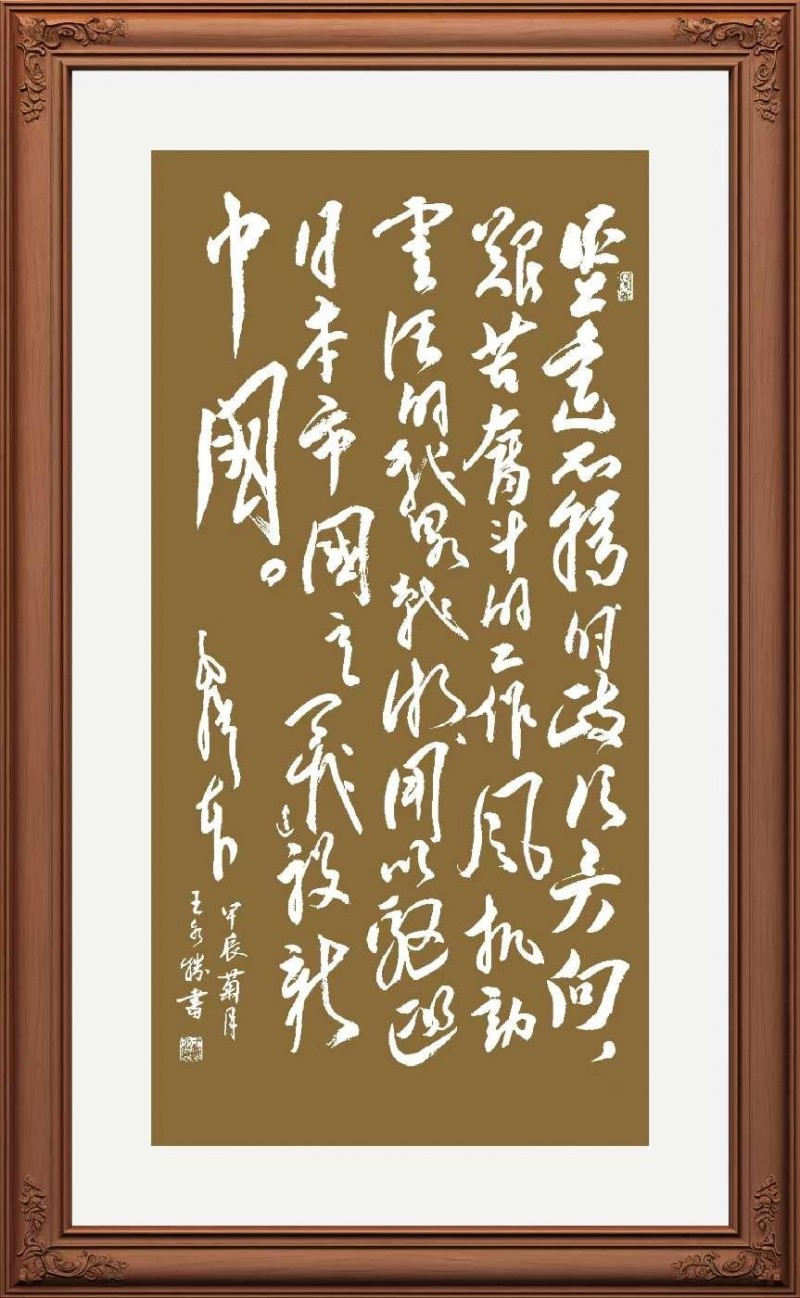 坚定不移的政治方向，
艰苦奋斗的工作风机动
灵活的战略战术，用以驱逐
日本帝國主義建设新
中國。
毛泽东
甲辰菊月
王永勝書